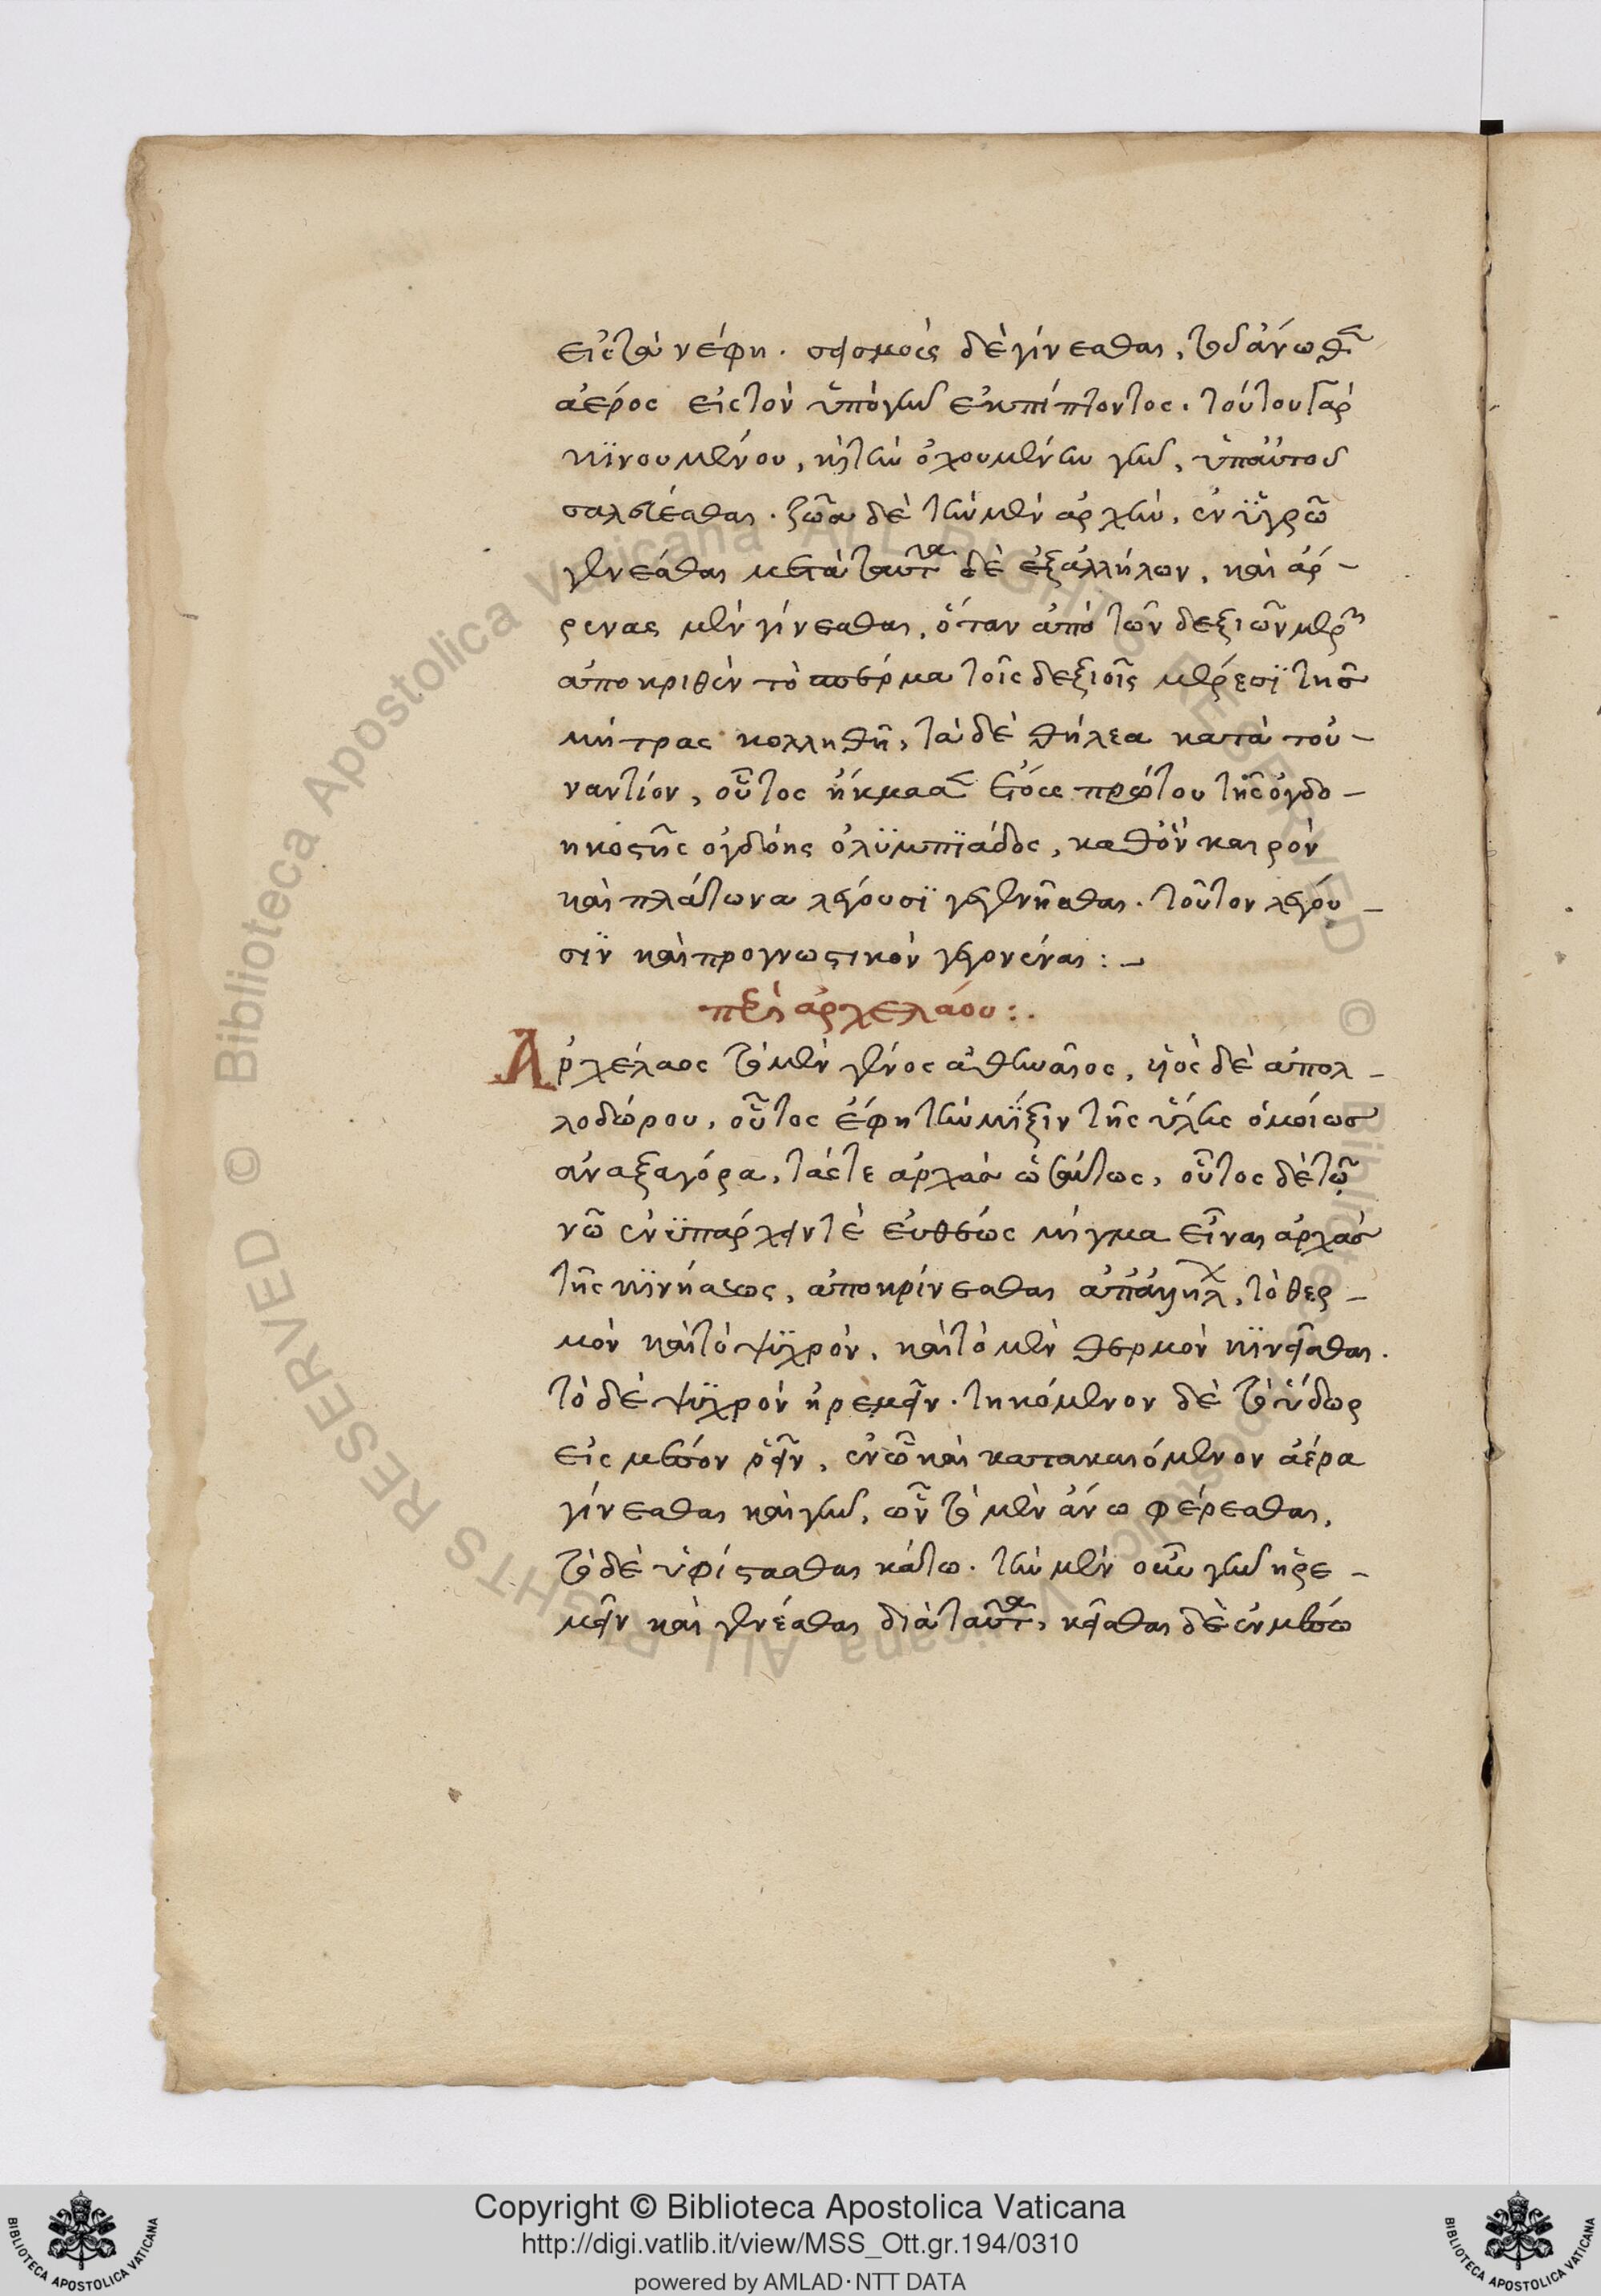 εἰς τὰ νέφη. σεισμοὺς δὲ γίνεσθαι, τοῦ ἄνωθεν
ἀέρος εἰς τὸν ὑπὸ γῆν ἐκπίπτοντος. τούτου γὰρ
κϊνουμένου, κ τὴν ὀχουμένην γῆν, ὑπ' αὐτοῦ
σαλεύεσθαι. ζῶα δὲ τὴν μὲν ἀρχὴν, ἐν ὑγρῶ
γενέσθαι μετὰ ταῦτα δὲ ἐξ ἀλλήλων, καὶ ἄρ-
ρενας μὲν γίνεσθαι, ὅταν ἀπὸ τῶν δεξιῶν μερῶν
ἀποκριθὲν τὸ σπέρμα τοῖς δεξιοῖς μέρεσϊ τῆς
μήτρας κολληθῆ, τὰ δὲ θήλεα κατὰ του-
ναντίον, οὗτος ἤκμασεν ἔτους πρώτου τῆς ὀγδο-
ηκοστῆς ὀγδόης ὀλϋμπϊάδος, καθ' ὃν καιρὸν
καὶ πλάτωνα λέγουσϊ γεγενῆσθαι. τοῦτον λέγου-
σϊν καὶ προγνωστικὸν γεγονέναι:-
περὶ ἀρχελάου:.
Ἀρχέλαος τὸ μὲν γένος ἀθηναῖος, υἱὸς δὲ ἀπολ-
λοδώρου, οὗτος ἔφη τὴν μϊξιν τῆς ὕλης ὁμοίως
ἀναξαγόρα, τάς τε ἀρχὰς ὡσαύτως, οὗτος δὲ τῶ
νῶ ἐνϋπάρχειν τὲ εὐθέως μίγμα εἶναι ἀρχὰς
τῆς κϊνήσεως, ἀποκρίνεσθαι ἀπ' ἀλλήλ, τὸ θερ-
μὸν καὶ τὸ ψϋχρὸν, καὶ τὸ μὲν θερμὸν κϊνεῖσθαι.
τὸ δὲ ψϋχρὸν ἠρεμεῖν. τηκόμενον δὲ τὸ ὕδωρ
εἰς μέσον ῥεῖν, ἐν ὧ καὶ κατακαιόμενον ἀέρα
γίνεσθαι καὶ γῆν, ὧν τὸ μὲν ἄνω φέρεσθαι,
τὸ δὲ ὑφίστασθαι κάτω. τὴν μὲν οὖν γῆν ἠρε-
μεῖν καὶ γενέσθαι διὰ ταῦτα, κεῖσθαι δὲ ἐν μέσω
Copyright © Biblioteca Apostolica Vaticana
http://digi.vatlib.it/view/MSS_Ott.gr.194/0310
powered by AMLAD·NTT DATA
BIBLIOTECA APOSTOLICA VATICANA
BIBLIOTECA APOSTOLICA VATICANA
© Biblioteca Apostolica Vaticana ALL RIGHTS RESERVED © Biblioteca Apostolica Vaticana ALL RIGHTS RESERVED